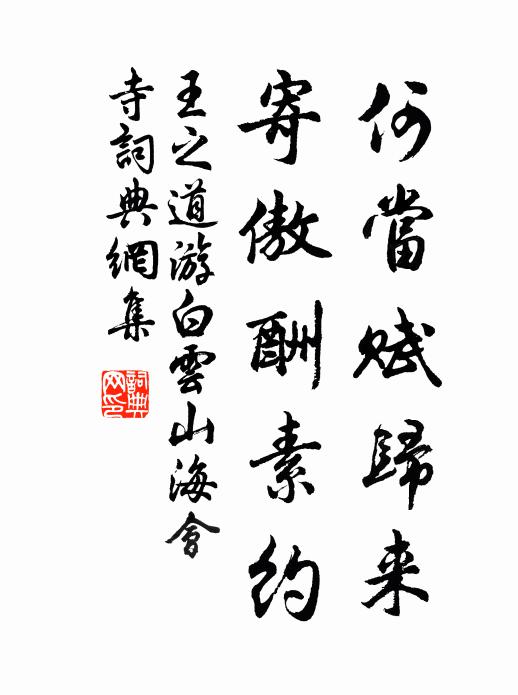 何當賦歸来
寄傲酬素約
王之道游白雲山海會
寺詞典網集
詞典
网印